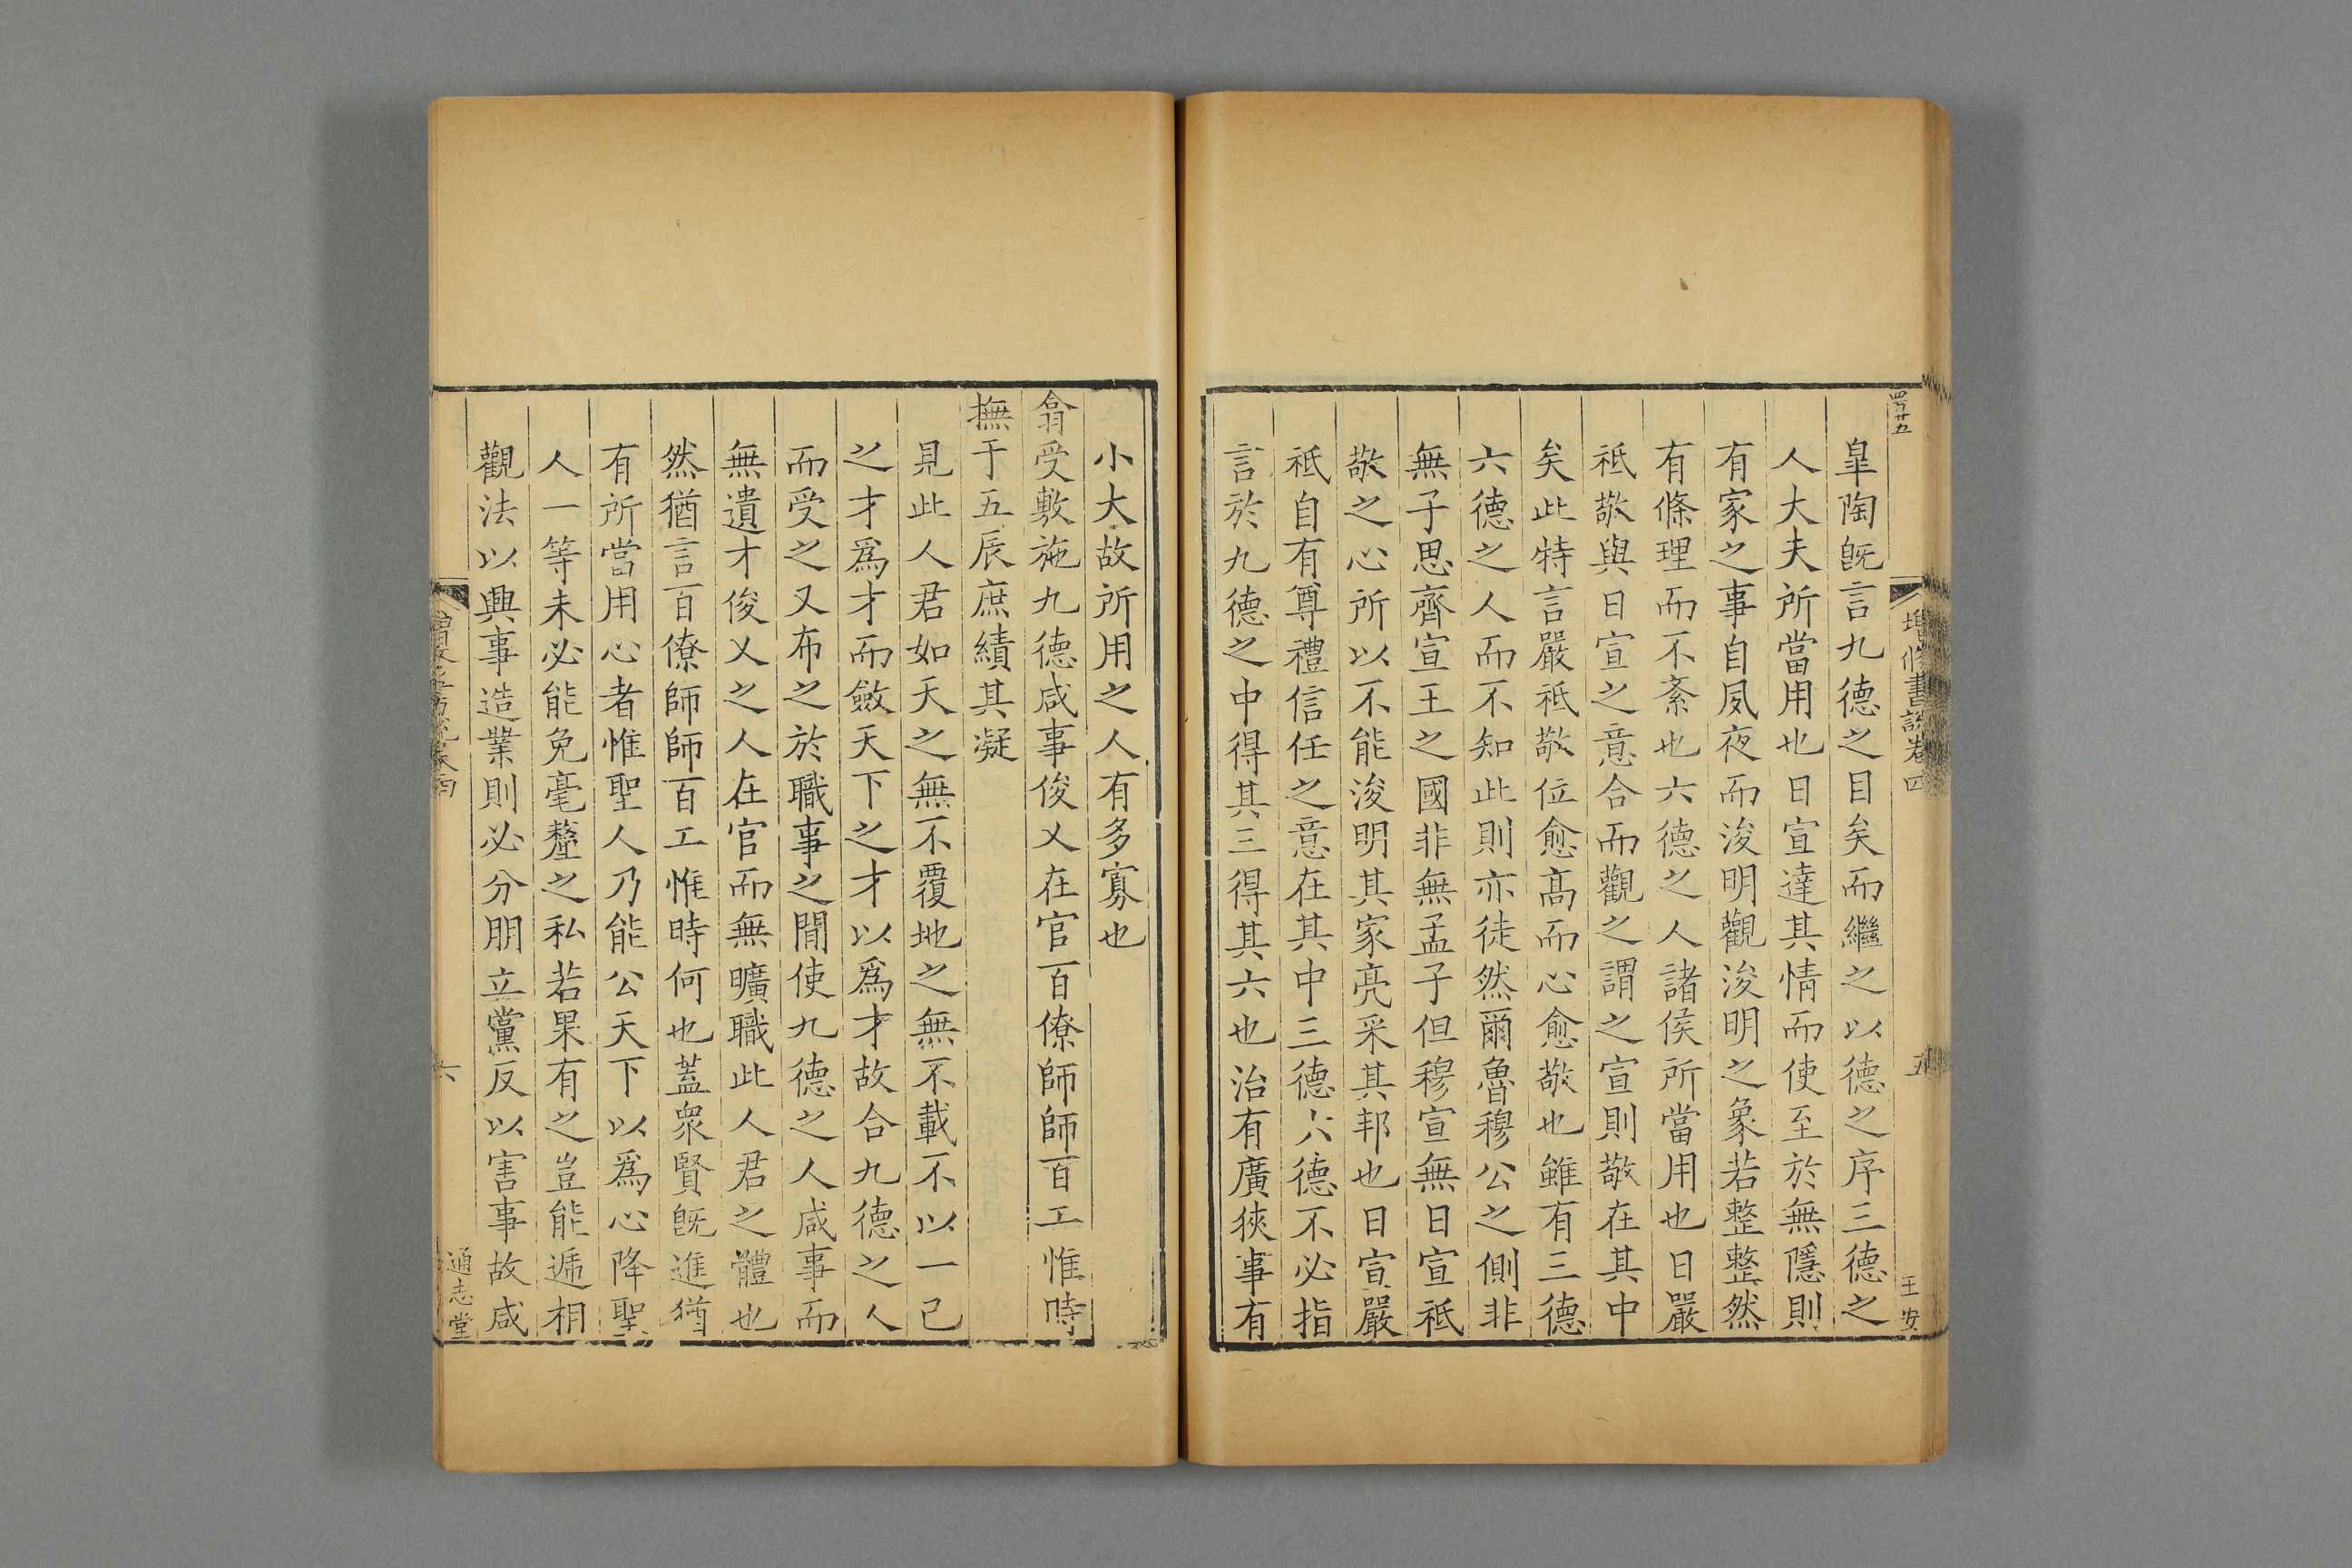 皐陶旣言九德之目矣而繼之以德之序三德之
人大夫所當用也日宣達其情而使至於無隱則
有家之事自夙夜而浚明觀浚明之象若整整然
有條理而不紊也六德之人諸侯所當用也日嚴
祗敬與日宣之意合而觀之謂之宣則敬在其中
矣此特言嚴祗敬位愈高而心愈敬也雖有三德
六德之人而不知此則亦徒然爾魯穆公之側非
無子思齊宣王之國非無孟子但穆宣無日宣祗
敬之心所以不能浚明其家亮采其邦也日宣嚴
祗自有尊禮信任之意在其中三德六德不必指
言於九德之中得其三得其六也治有廣狹事有
增修書說卷四
五
王安
小大故所用之人有多寡也
翕受敷施九德咸事俊乂在官百僚師師百工惟時
撫于五辰庶績其凝
見此人君如天之無不覆地之無不載不以一己
之才爲才而斂天下之才以爲才故合九德之人
而受之又布之於職事之閒使九德之人咸事而
無遺才俊乂之人在官而無曠職此人君之體也
然猶言百僚師師百工惟時何也蓋衆賢旣進猶
有所當用心者惟聖人乃能公天下以爲心降聖
人一等未必能免毫釐之私若果有之豈能遞相
觀法以興事造業則必分朋立黨反以害事故咸
六
通志堂